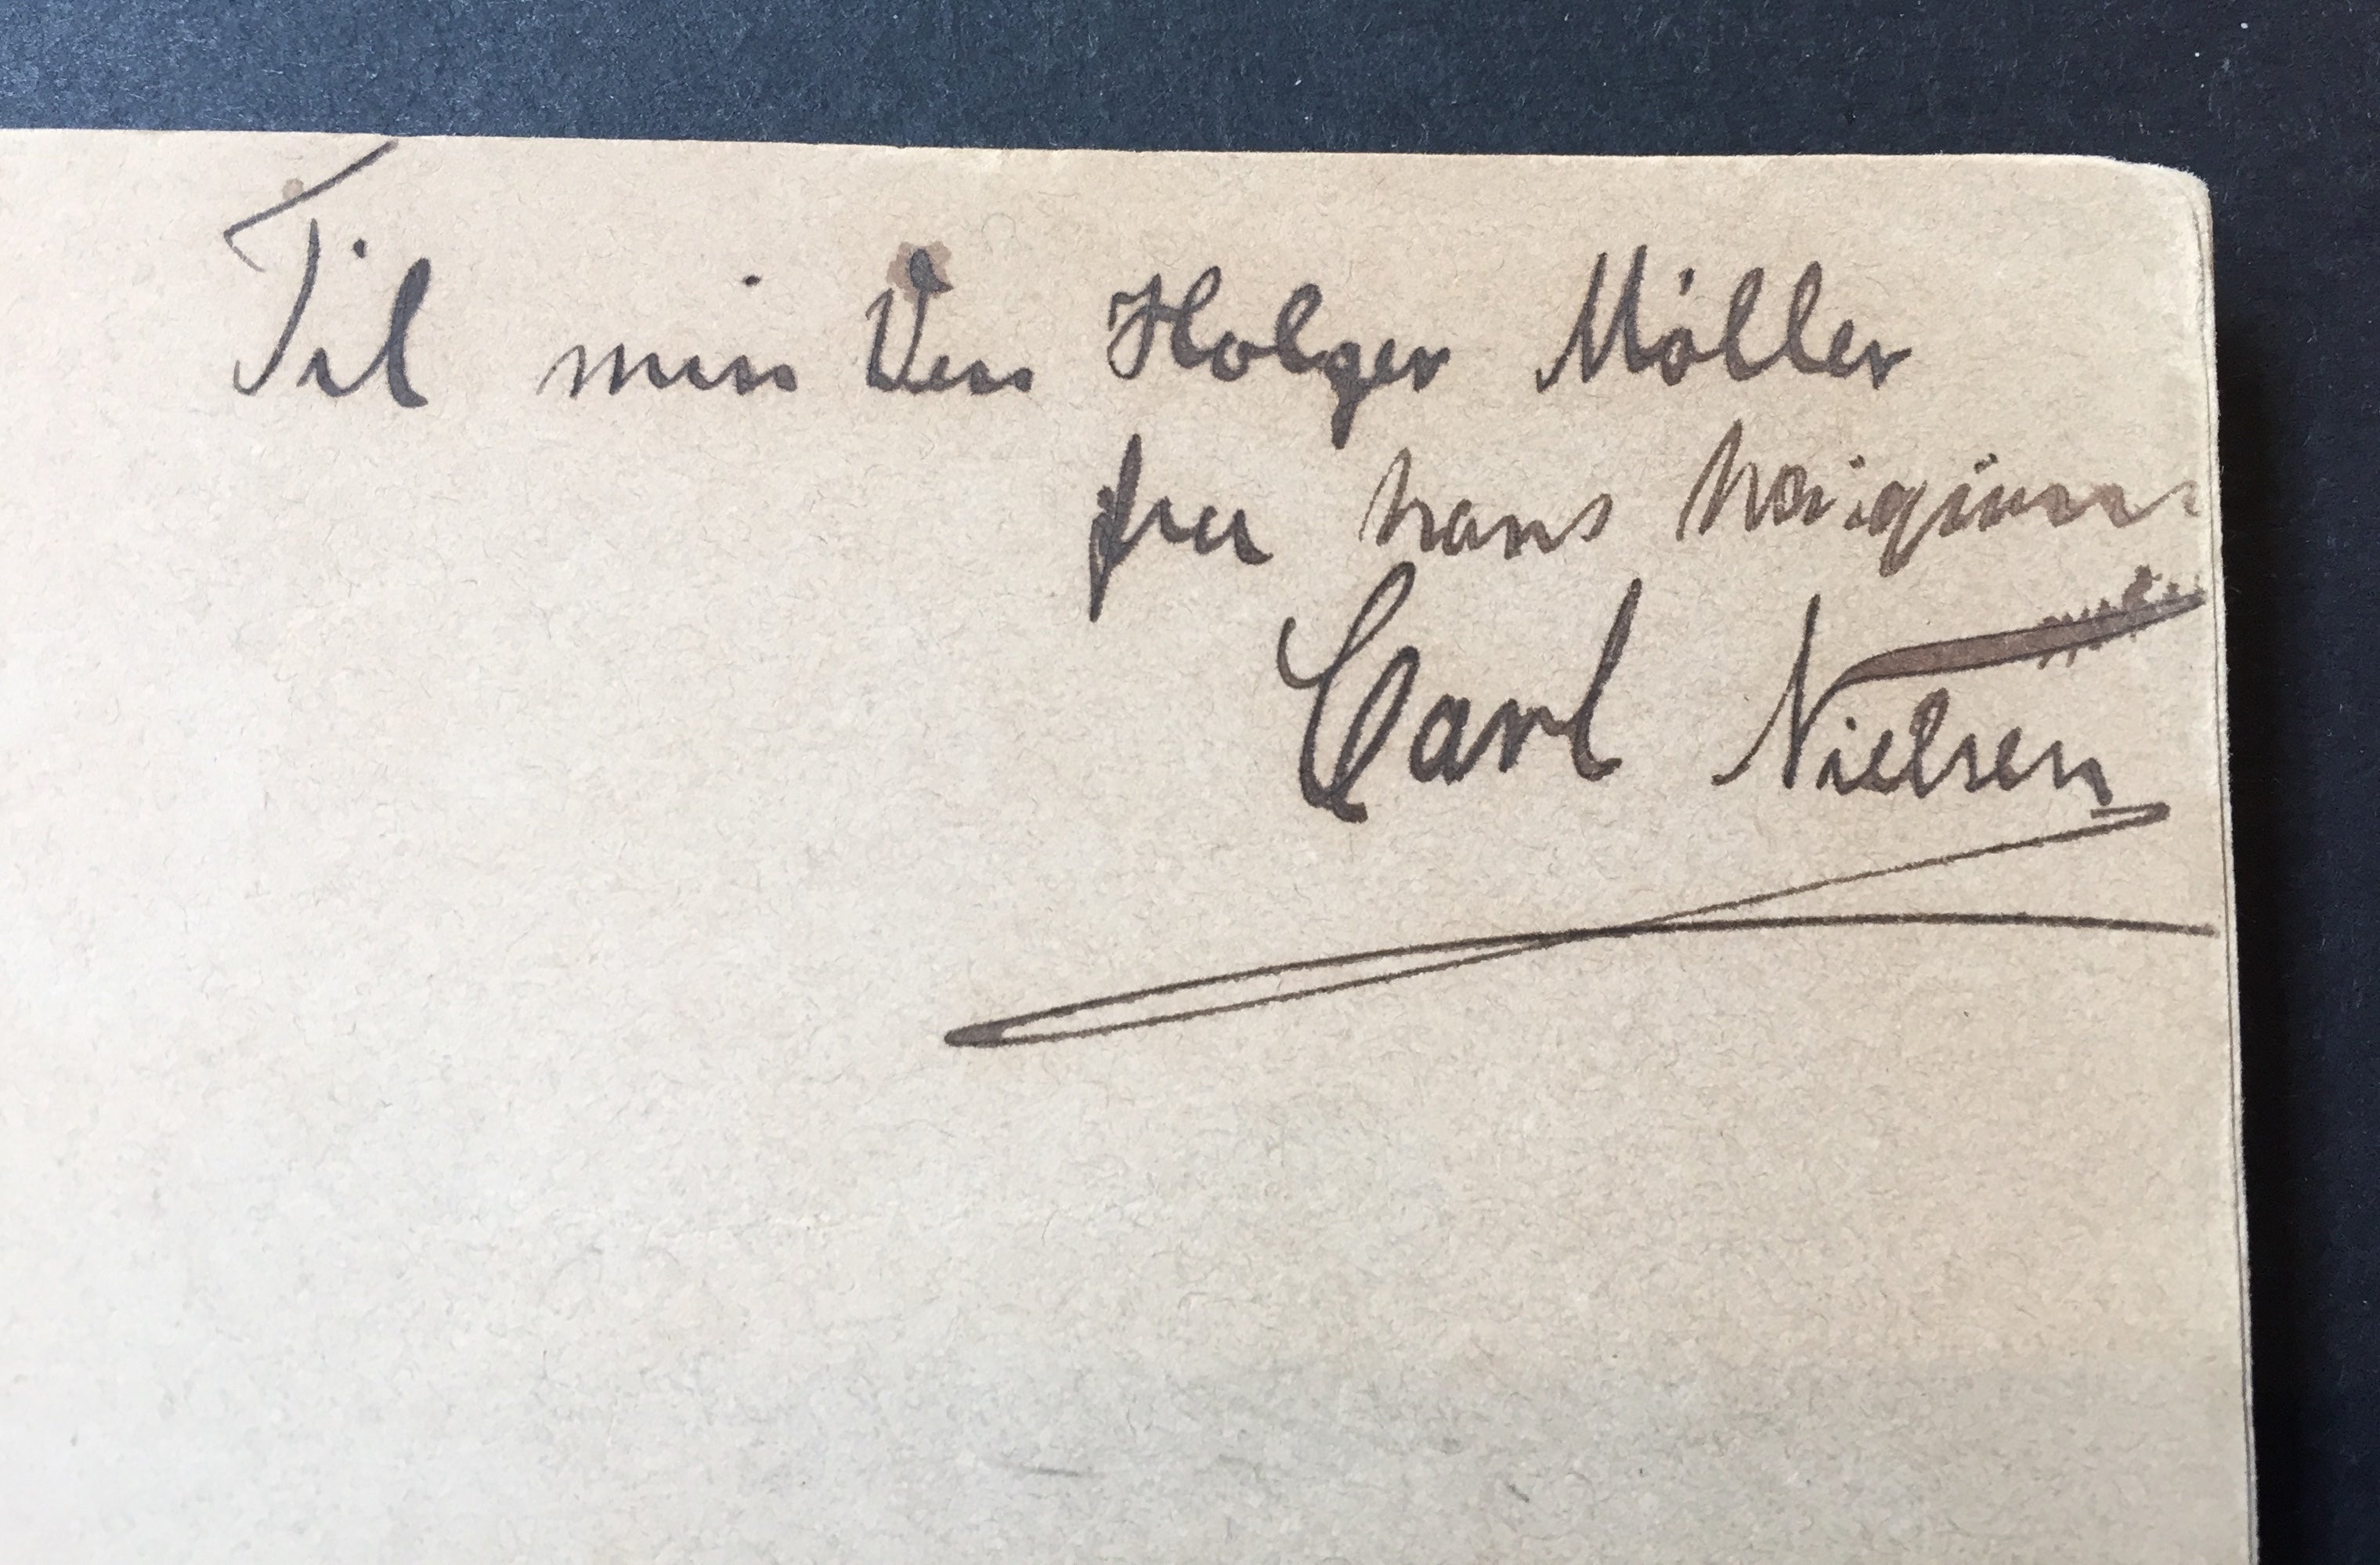 Til min Ven Holger Möller
fra hans hengivne
Carl Nielsen